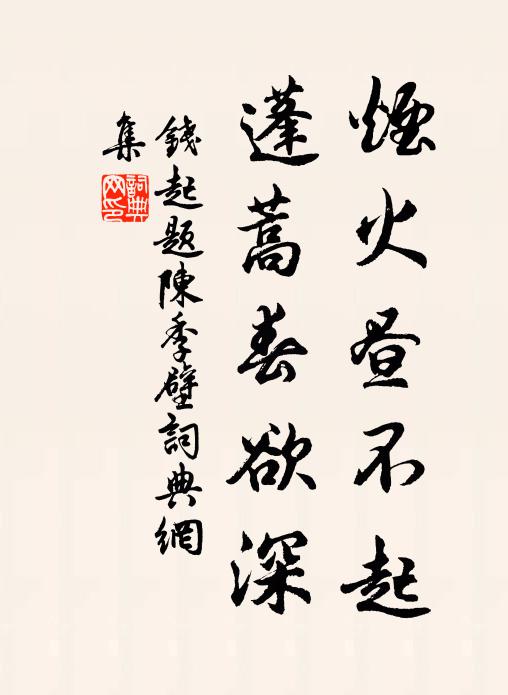 煙火昼不起
蓬蒿春欲深
錢起題陳季壁詞典網
集
詞典網印